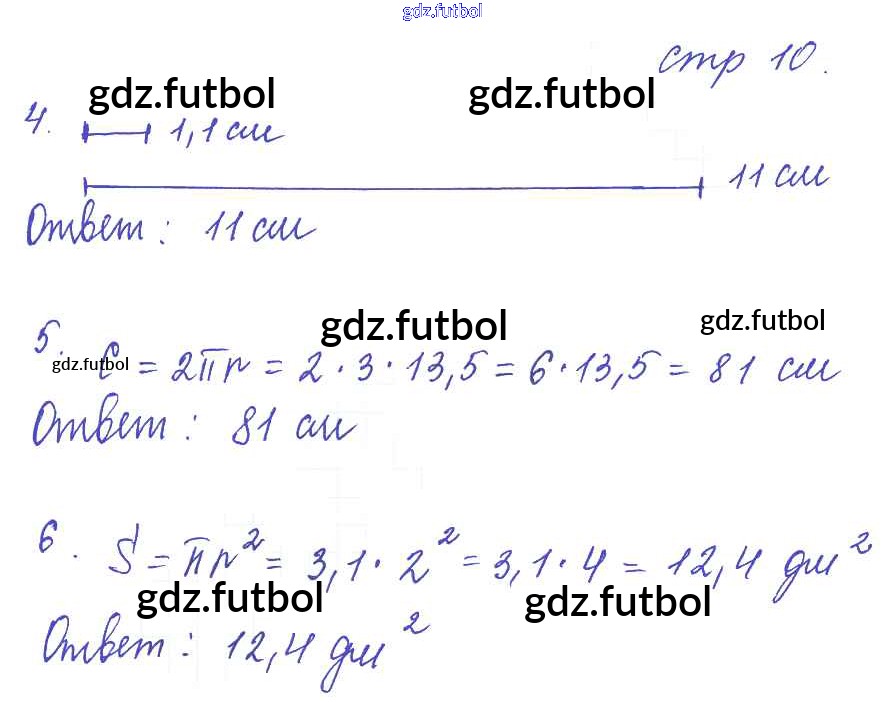 gdz.futbol
стр 10.
gdz.futbol gdz.futbol
4. 1,1 см
11 см
Ответ: 11 см
gdz.futbol gdz.futbol
5. C = 2πr = 2 · 3 · 13,5 = 6 · 13,5 = 81 см
gdz.futbol
Ответ: 81 см
6. S = πr² = 3,1 · 2² = 3,1 · 4 = 12,4 дм²
gdz.futbol gdz.futbol
Ответ: 12,4 дм²